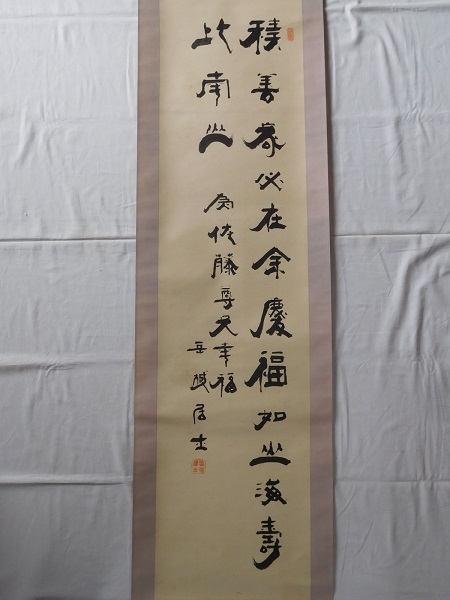 積善家必在余慶福如山海壽
比南山
為佐藤尊幸福
岳居士